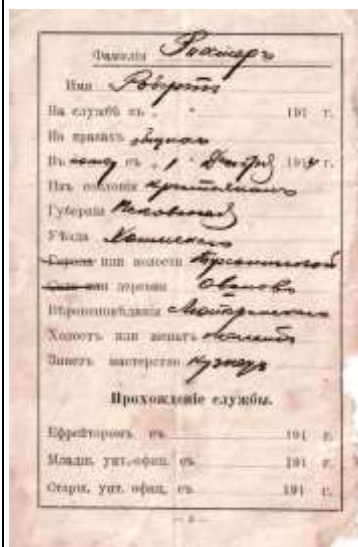 Фамилія Рихтеръ
Имя Робертъ
На службѣ съ „ " 191 г.
На правахъ общихъ
Въ съ „ 1 " 1914 г.
Изъ сословія крестьянъ
Губерніи Псковской
Уѣзда Холмскаго
Города или волости
Села или деревни
Вѣроисповѣданія
Холостъ или женатъ холостъ
Знаетъ мастерство кузнецъ
Прохожденіе службы.
Ефрейторомъ съ 191 г.
Младш. унт.-офиц. съ 191 г.
Старш. унт. офиц. съ 191 г.